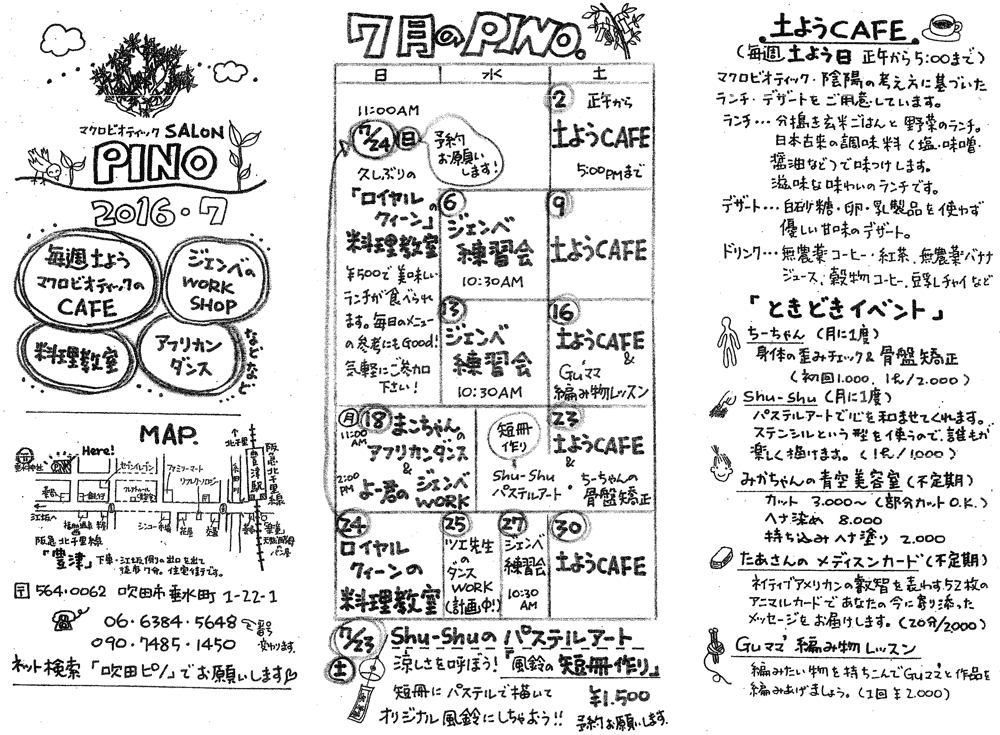 マクロビオティック SALON
PINO
2016・7
毎週土よう
マクロビオティックの
CAFE
ジェンベの
WORK
SHOP
料理教室
アフリカン
ダンス
などなど
MAP.
Here!
セブンイレブン
ファミリーマート
リフレクソロジー
阪急北千里線
豊津駅
北千里
江坂へ
阪急北千里線
「豊津」下車・江坂側の出口を出て
徒歩7分。住宅街です。
〒564-0062 吹田市垂水町 1-22-1
06-6384-5648
090-7485-1450
変わります。
ネット検索「吹田ピノ」でお願いします
7月のPINO.
日 水 土
11:00AM
7/24 日
予約
お願い
します!
久しぶりの
「ロイヤルの
クィーン」
料理教室
¥500で美味しい
ランチが食べられ
ます。毎日のメニュー
の参考にもGood!
気軽にご参加
下さい!
2 正午から
土ようCAFE
5:00PMまで
6
ジェンベ
練習会
10:30AM
9
土ようCAFE
13
ジェンベ
練習会
10:30AM
16
土ようCAFE
&
Guママ
編み物レッスン
月 18 まこちゃんの
11:00 AM
アフリカンダンス
&
2:00 PM
よー君の ジェンベ
WORK
短冊
作り
Shu-Shu
パステルアート・
23
土ようCAFE
&
ちーちゃんの
骨盤矯正
24
ロイヤル
クィーンの
料理教室
25
ツエ先生
の
ダンス
WORK
(計画中!)
27
ジェンベ
練習会
10:30
AM
30
土ようCAFE
7/23 土
Shu-Shuの パステルアート
涼しさを呼ぼう!「風鈴の短冊作り」
短冊にパステルで描いて ¥1,500
オリジナル風鈴にしちゃおう!! 予約お願いします.
土ようCAFE
(毎週 土よう日 正午から5:00まで)
マクロビオティック・陰陽の考え方に基づいた
ランチ・デザートをご用意しています。
ランチ… 分搗き玄米ごはんと野菜のランチ。
日本古来の調味料(塩・味噌・
醤油など)で味つけします。
滋味な味わいのランチです。
デザート… 白砂糖・卵・乳製品を使わず
優しい甘味のデザート。
ドリンク… 無農薬コーヒー・紅茶、無農薬バナナ
ジュース、穀物コーヒー、豆乳チャイなど
「ときどきイベント」
ちーちゃん (月に1度)
身体の歪みチェック&骨盤矯正
(初回1.000, 1人/2.000)
Shu-Shu (月に1度)
パステルアートで心を和ませてくれます。
ステンシルという型を使うので、誰もが
楽しく描けます。(1人/1,000)
みかちゃんの青空美容室(不定期)
カット 3.000~(部分カットO.K.)
ヘナ染め 8.000
持ち込みヘナ塗り 2.000
たあさんの メディスンカード(不定期)
ネイティブアメリカンの叡智を表わす52枚の
アニマルカードであなたの今に寄り添った
メッセージをお届けします。(20分/2000)
Guママ 編み物レッスン
編みたい物を持ちこんでGuママと作品を
編みあげましょう。(1回¥2.000)